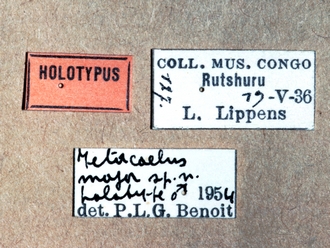 HOLOTYPUS
COLL. MUS. CONGO
Rutshuru
-V-36
L. Lippens
major sp. n.
holotype ♂ 1954
det. P.L.G. Benoit